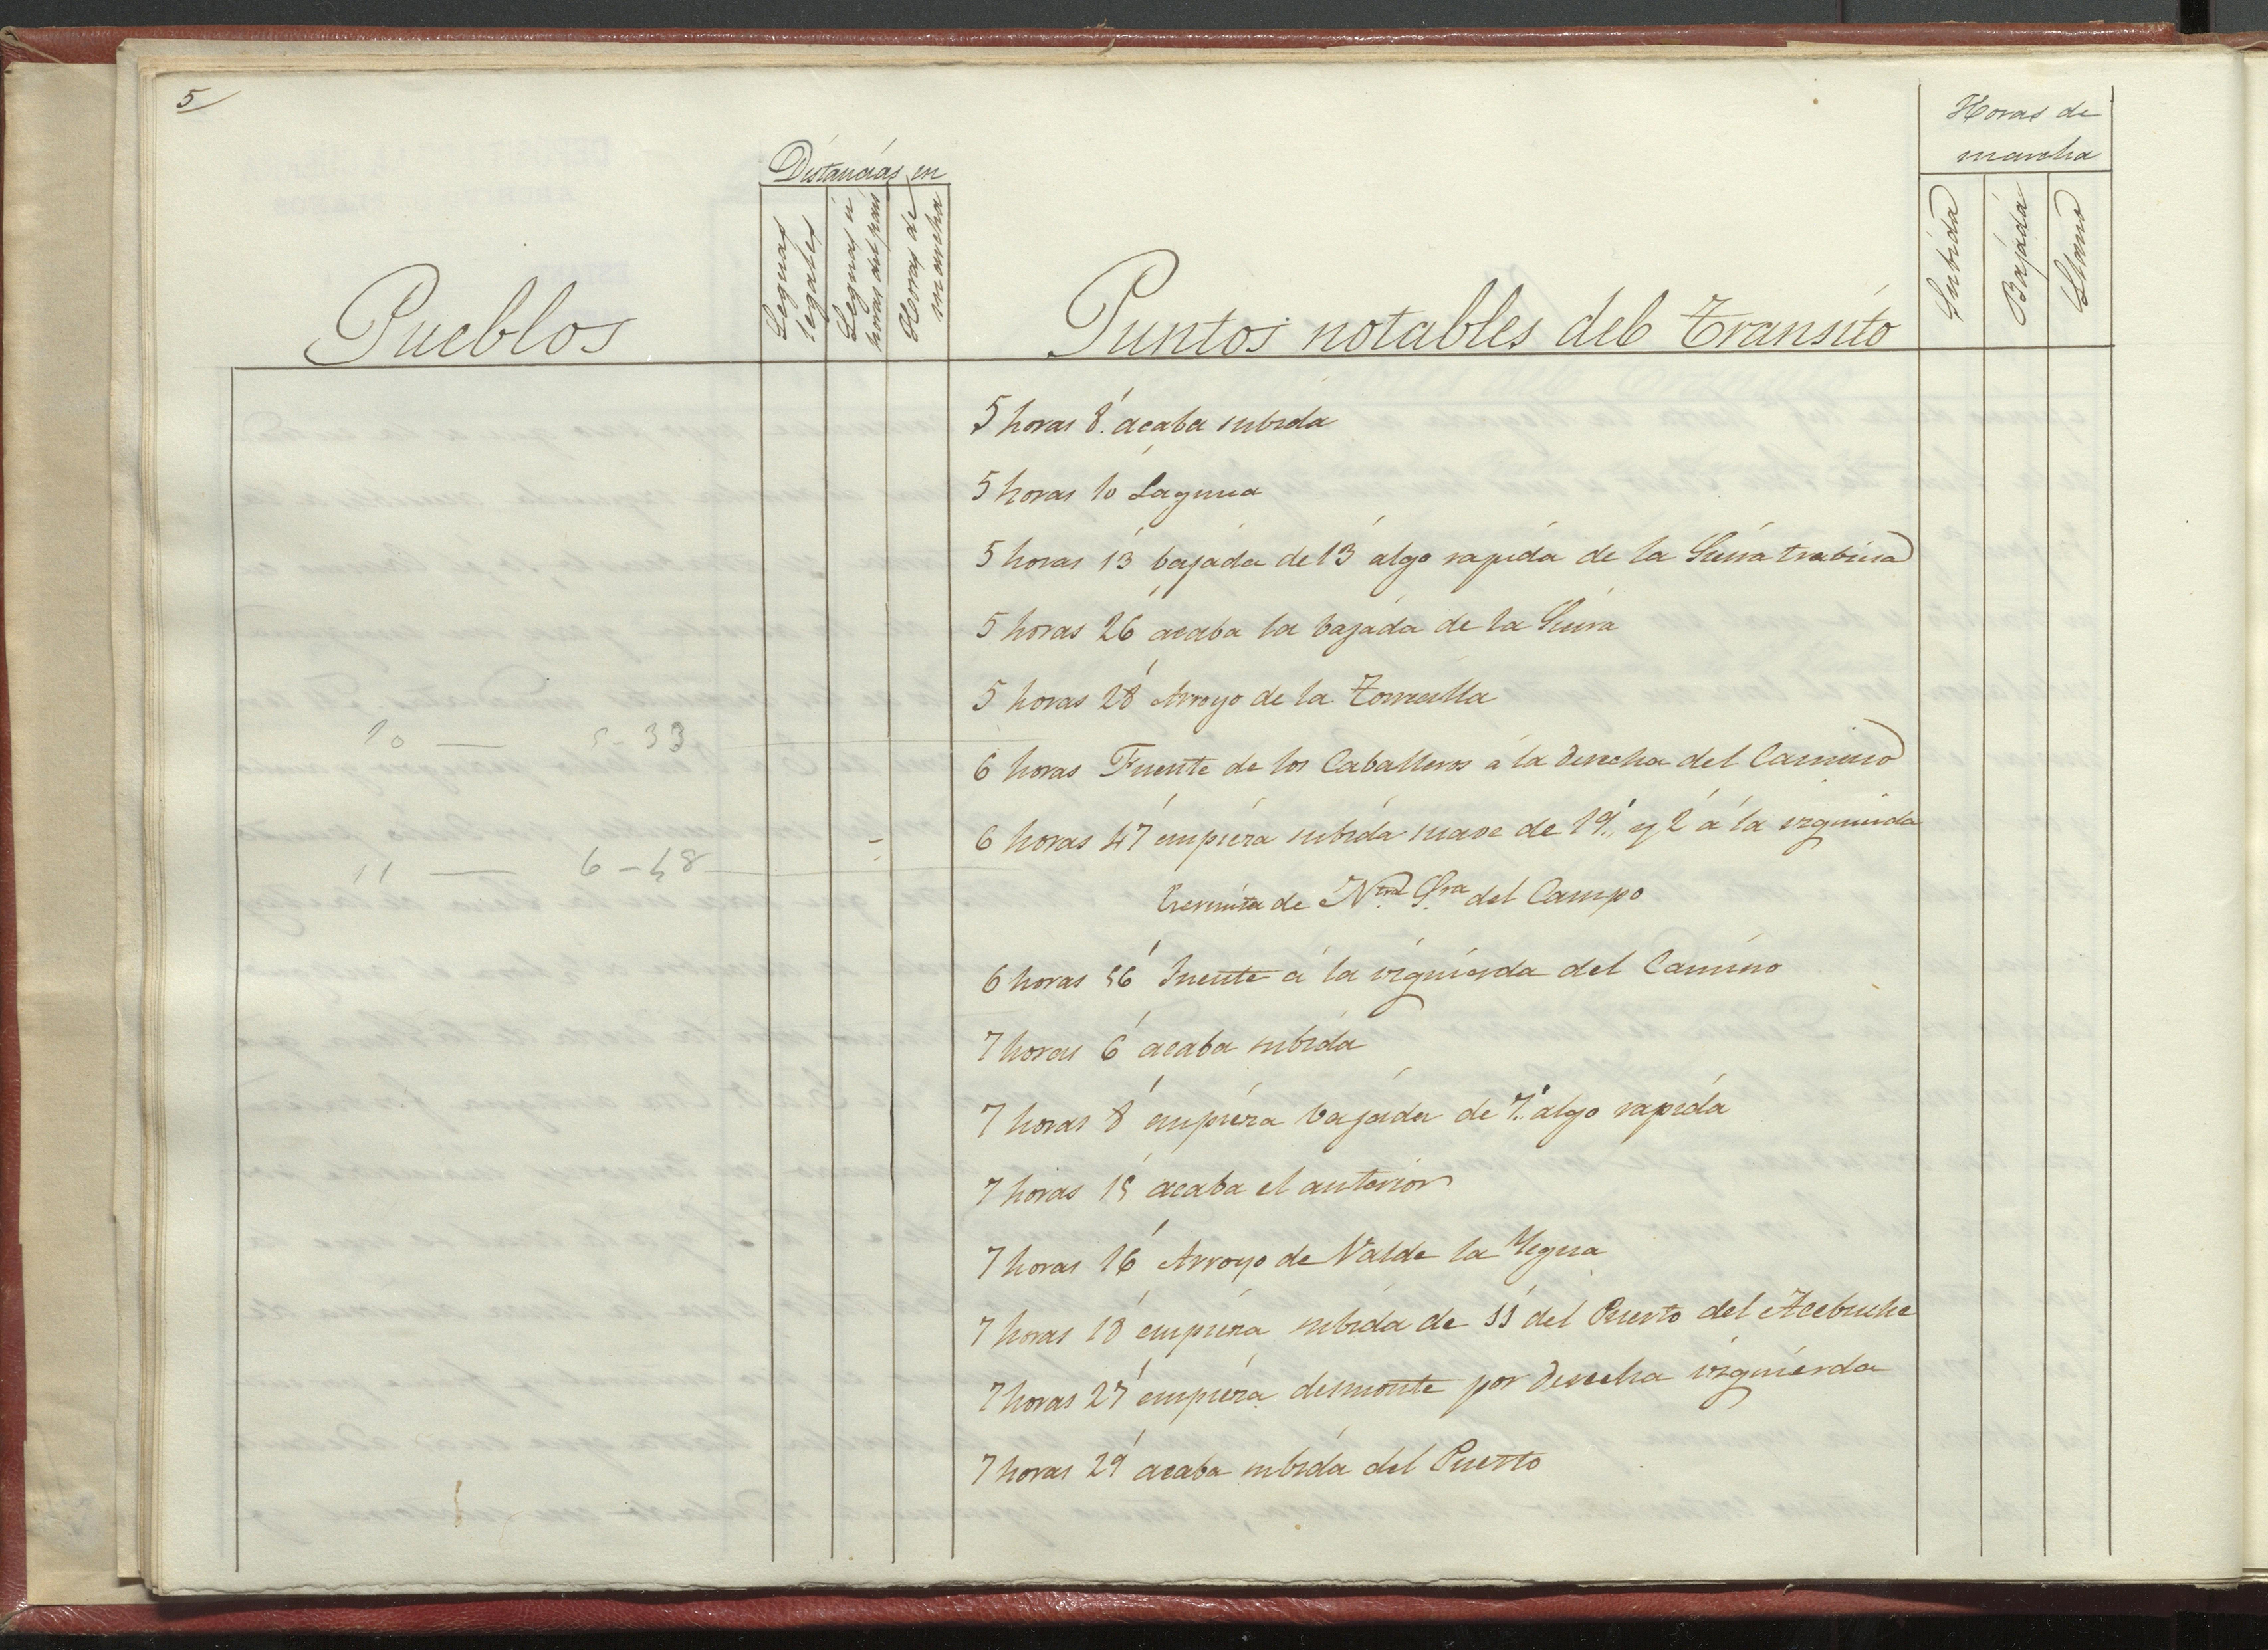 5
Distancias en
Horas de
marcha
Pueblos
Leguas
legales
Leguas ú
horas del pais
Horas de
marcha
Puntos notables del transito
Subida
Bajada
Llano
5 horas 8' acaba subida
5 horas 10' Laguna
5 horas 13' bajada de 13' algo rapida de la Sierra trabiesa
5 horas 26' acaba la bajada de la Sierra
5 horas 28' Arroyo de la Torrecilla
10 — 5-33
6 horas Fuente de los Caballeros á la derecha del Camino
6 horas 47' empieza subida suave de 19' y 2' á la izquierda
11 — 6-48
Ermita de Ntra Sra del Campo
6 horas 56' Fuente á la izquierda del Camino
7 horas 6' acaba subida
7 horas 8' empieza bajada de 7' algo rapida
7 horas 15' acaba el anterior
7 horas 16' Arroyo de Valde la Yegua
7 horas 18' empieza subida de 11' del Puerto del Acebuche
7 horas 27' empieza desmonte por derecha izquierda
7 horas 29' acaba subida del Puerto